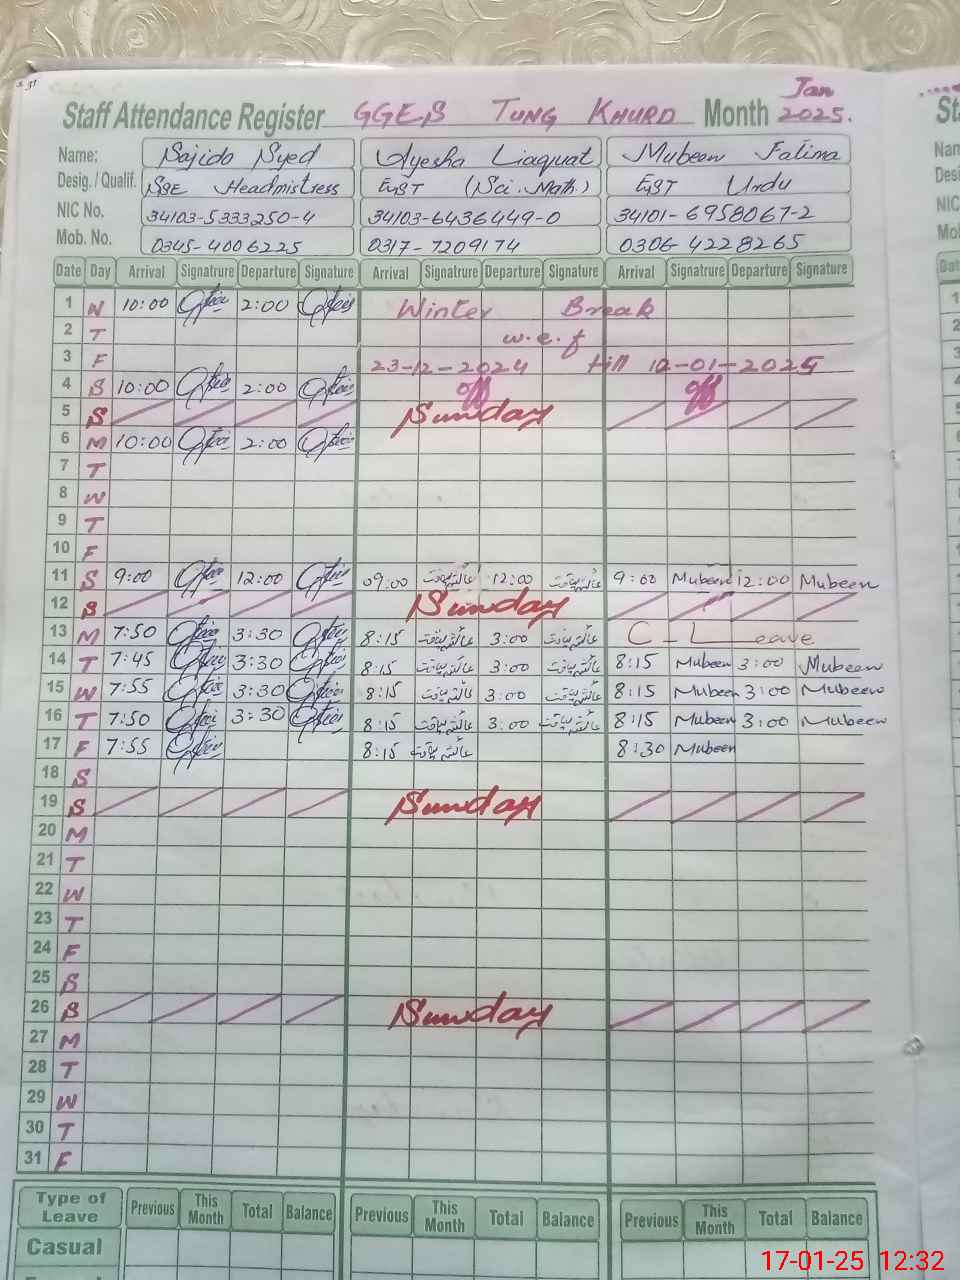 Staff Attendance Register GGES TUNG KHURD Month Jan 2025.
Name: Sajida Syed Ayesha Liaquat Mubeen Fatima
Desig. / Qualif. SSE Headmistress EST (Sci. Math.) EST Urdu
NIC No. 34103-5333250-4 34103-6436449-0 34101-6958067-2
Mob. No. 0345-4006225 0317-7209174 0306-4228265
Date Day Arrival Signatrure Departure Signature Arrival Signatrure Departure Signature Arrival Signatrure Departure Signature
1 W 10:00 2:00 Winter Break
2 T w.e.f
3 F 23-12-2024 till 10-01-2025
4 S 10:00 2:00 off off
5 S Sunday
6 M 10:00 2:00
7 T
8 W
9 T
10 F
11 S 9:00 12:00 09:00 12:00 9:00 Mubeen 12:00 Mubeen
12 S Sunday
13 M 7:50 3:30 8:15 3:00 C-Leave
14 T 7:45 3:30 8:15 3:00 8:15 Mubeen 3:00 Mubeen
15 W 7:55 3:30 8:15 3:00 8:15 Mubeen 3:00 Mubeen
16 T 7:50 3:30 8:15 3:00 8:15 Mubeen 3:00 Mubeen
17 F 7:55 8:15 8:30 Mubeen
18 S
19 S Sunday
20 M
21 T
22 W
23 T
24 F
25 S
26 S Sunday
27 M
28 T
29 W
30 T
31 F
Type of Leave Previous This Month Total Balance Previous This Month Total Balance Previous This Month Total Balance
Casual
17-01-25 12:32